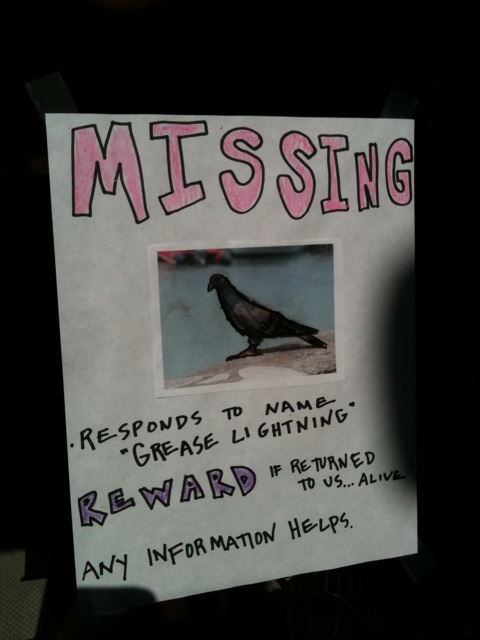 MISSING
· RESPONDS TO NAME
"GREASE LIGHTNING"
REWARD IF RETURNED
TO US... ALIVE
ANY INFORMATION HELPS.